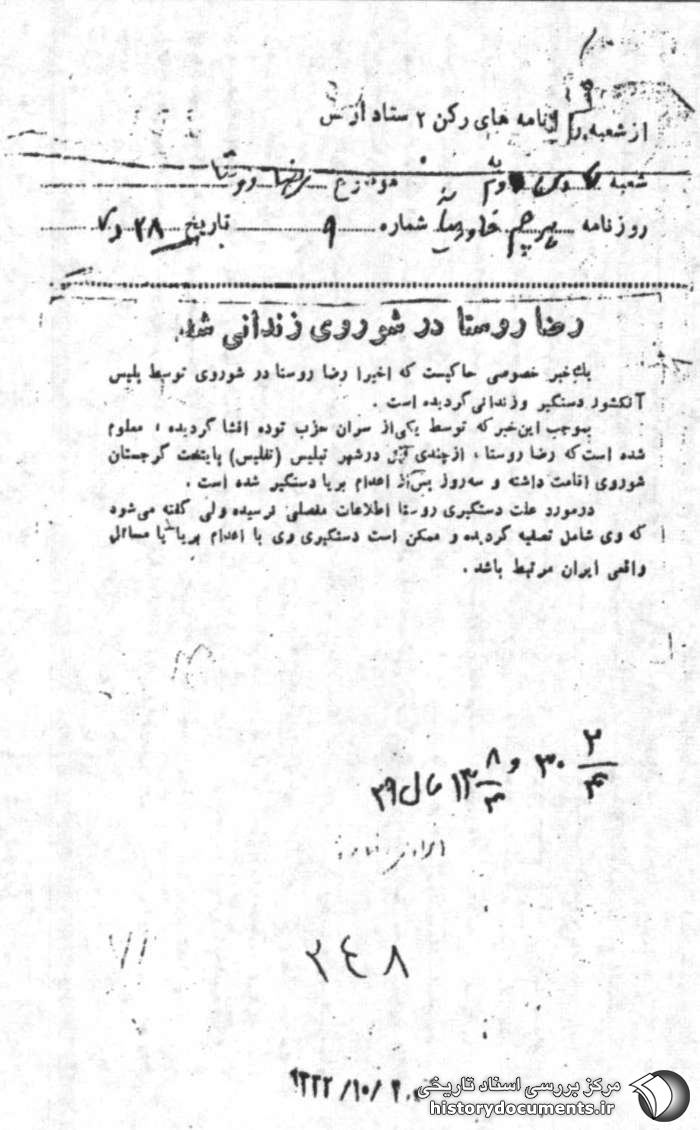 از شعبه روزنامه های رکن ۲ ستاد ارتش
شعبه دوم موضوع رضا روستا
روزنامه پرچم خاورمیانه شماره ۹ تاریخ ۲۸
رضا روستا در شوروی زندانی شد.
یك خبر خصوصی حاکیست که اخیرا رضا روستا در شوروی توسط پلیس
آنکشور دستگیر و زندانی گردیده است .
بموجب این خبر که توسط یکی از سران حزب توده افشا گردیده ، معلوم
شده است که رضا روستا ، از چندی قبل در شهر تبلیس (تفلیس) پایتخت گرجستان
شوروی اقامت داشته و سه روز پس از اعدام بریا دستگیر شده است .
در مورد علت دستگیری روستا اطلاعات مفصلی نرسیده ولی گفته می‌شود
که وی شامل تصفیه گردیده و ممکن است دستگیری وی با اعدام بریا یا مسائل
واقعی ایران مرتبط باشد .
۳۰ و ۸/۳ ۱۳ سال ۳۹
۲٤۸
مرکز بررسی اسناد تاریخی
historydocuments.ir